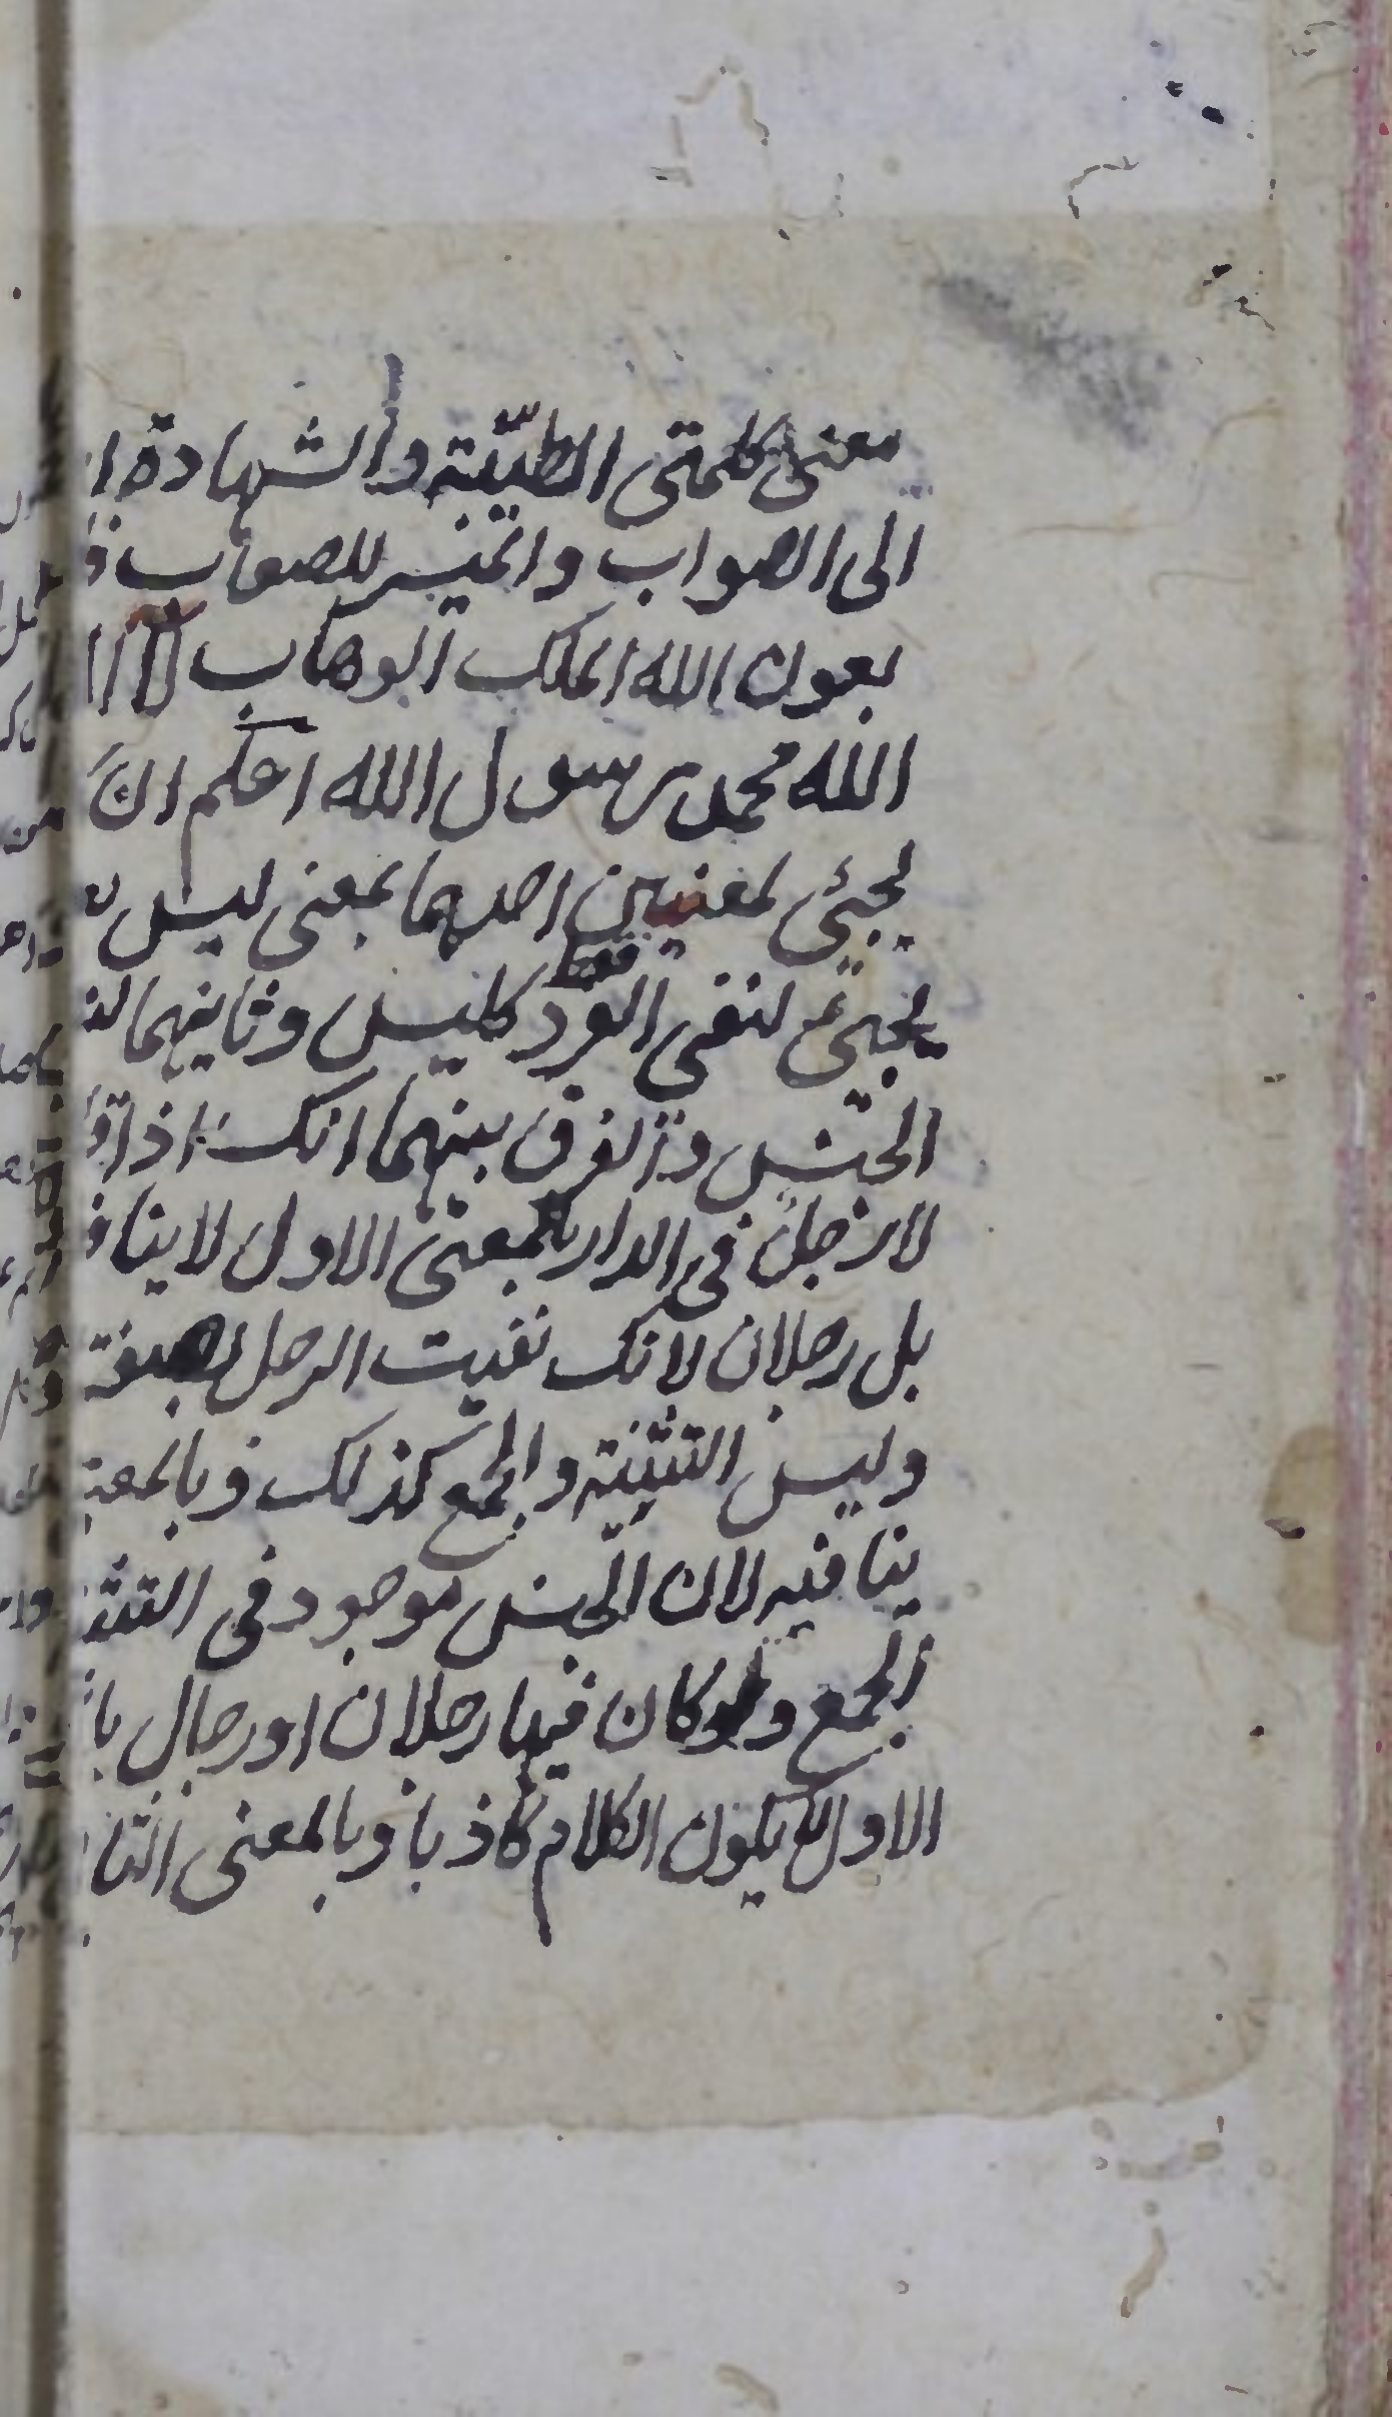 معنى كلمتى الطيّبة والشهادة
الى الصواب والميسر للصعاب
بعون الله الملك الوهاب لا ا
الله محمد رسول الله اعلم انَّ
يجئ لمعنيين احدهما بمعنى ليس
يجئ لنفى الفرد فقط كليس وثانيهما
الجنس والفرق بينهما انك اذا
لا رجل فى الدار بالمعنى الاول لا ينا
بل رجلان لانك نفيت الرجل بصفة
وليس التثنية والجمع كذلك وبالمعن
ينافيه لان الجنس موجود فى التث
الجمع ولو كان فيها رجلان او رجال با
الاول لا يكون الكلام كاذبا وبالمعنى الثا